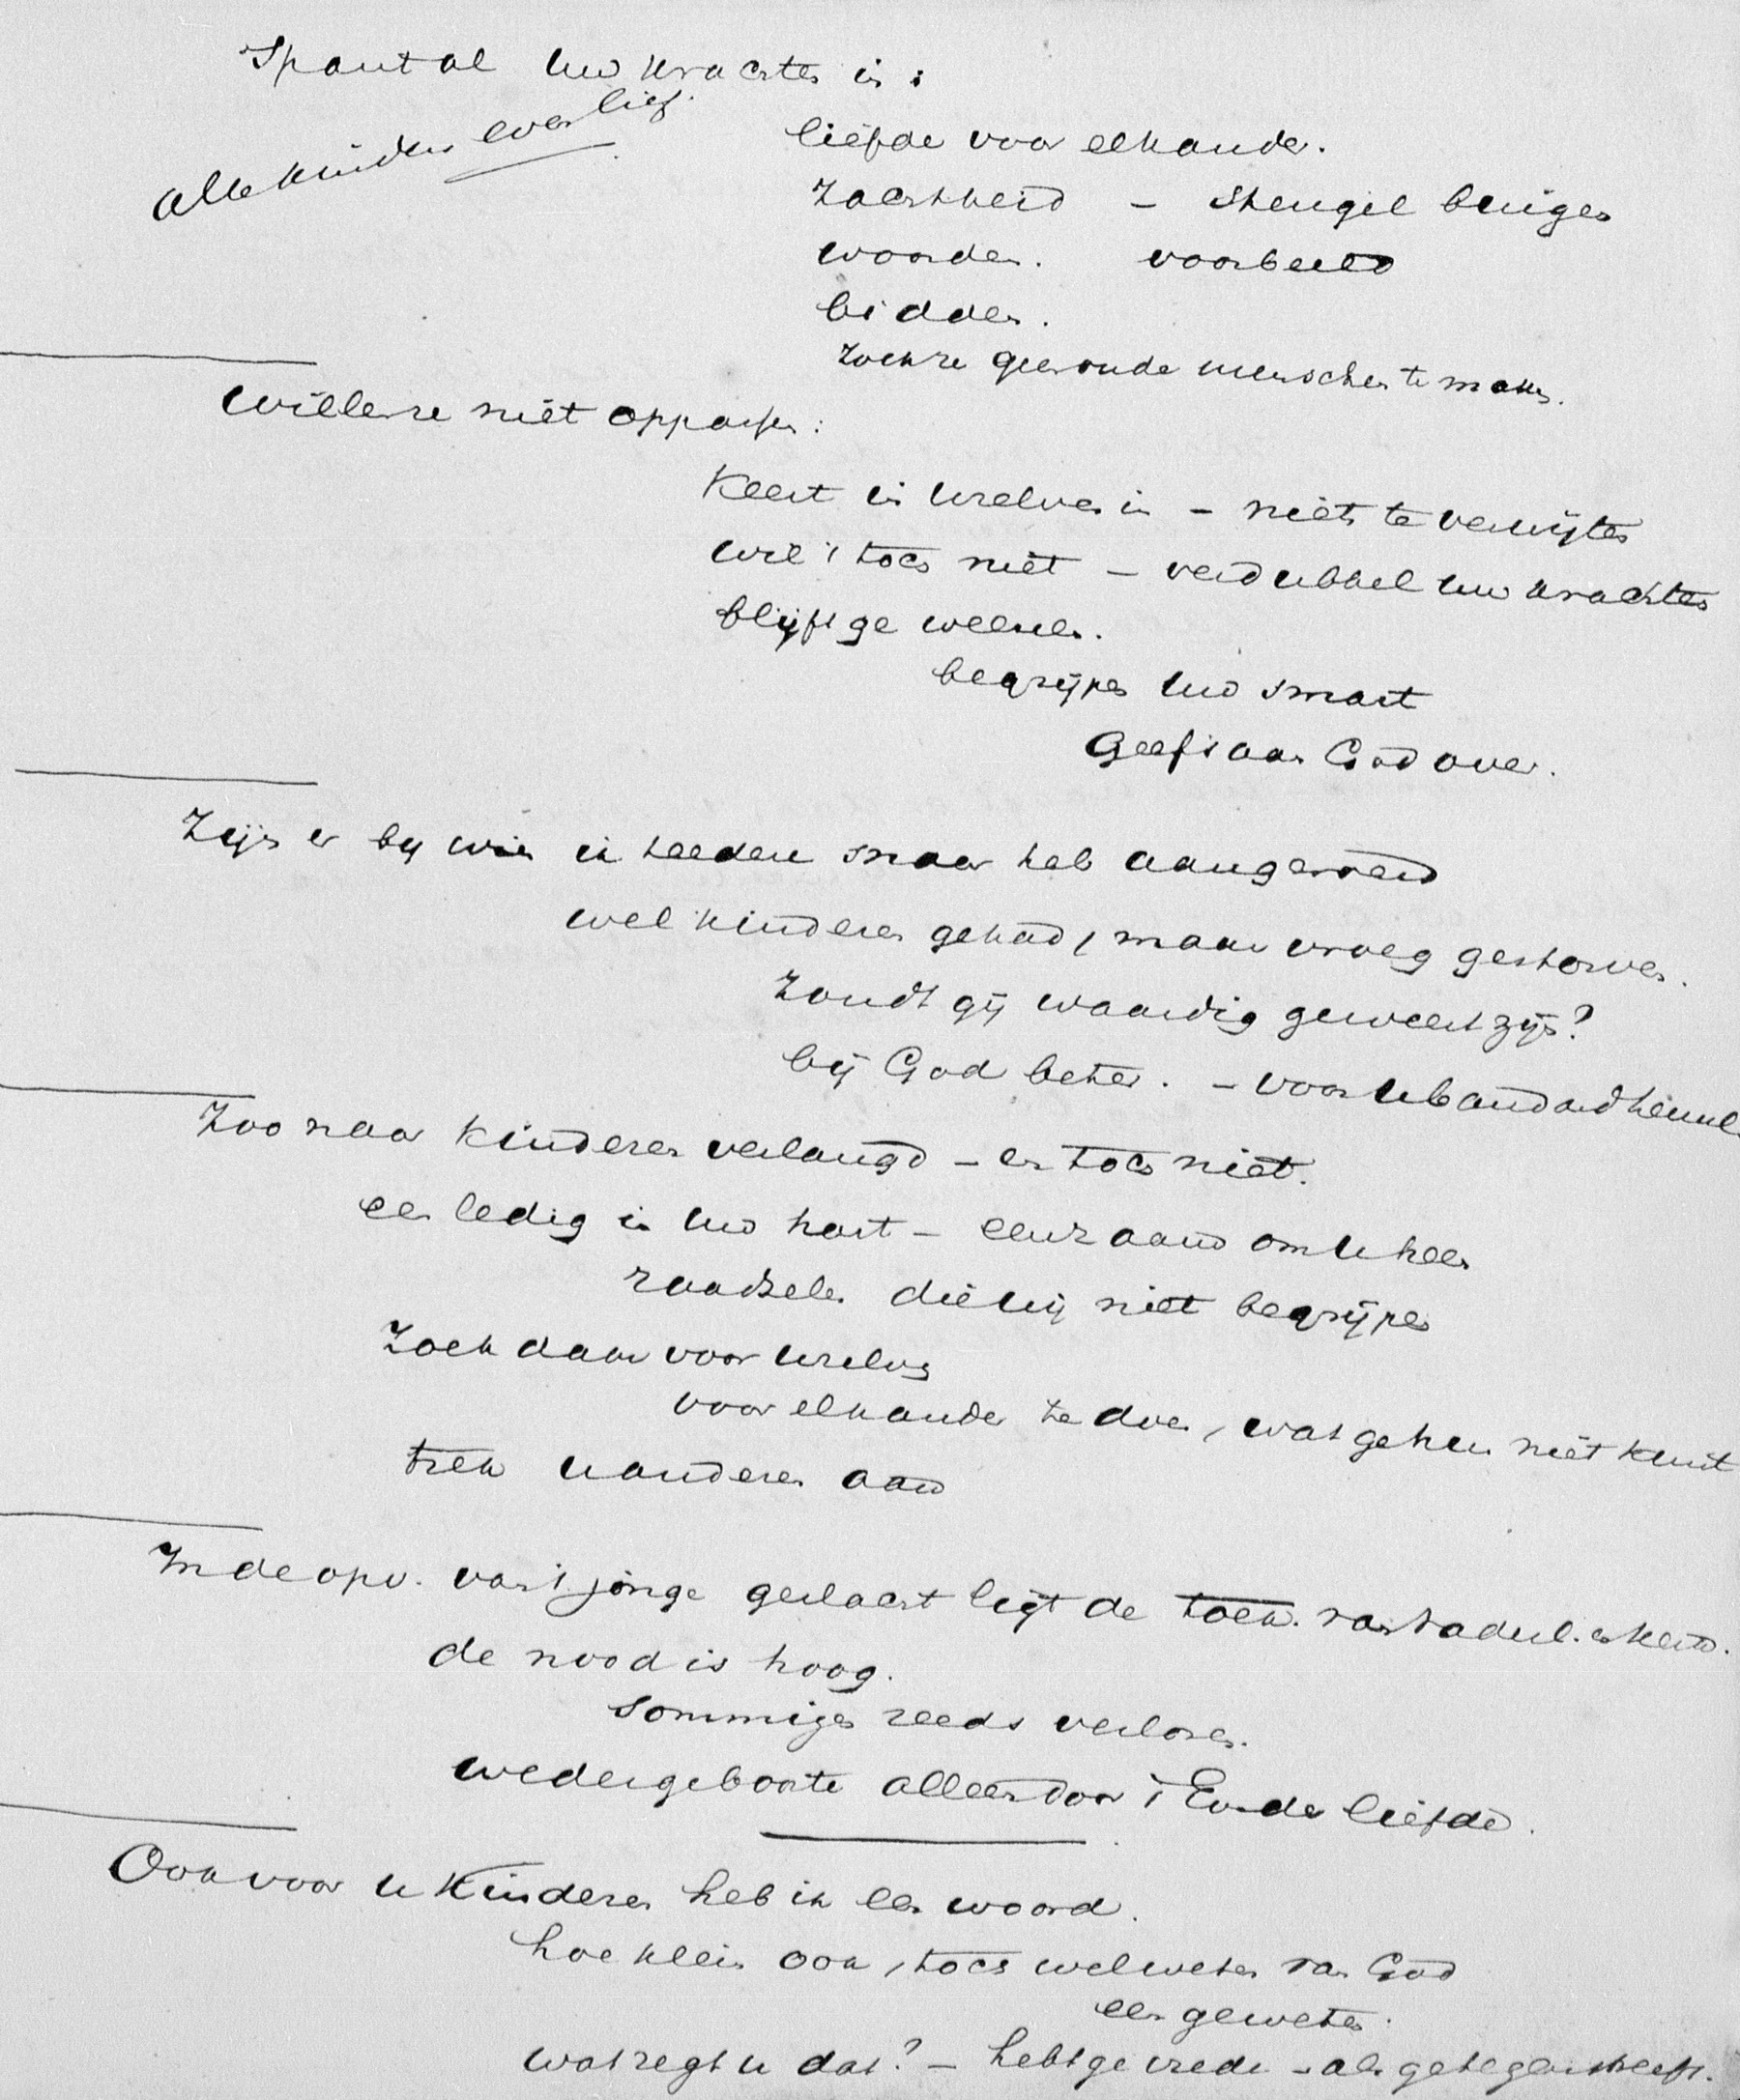 Spant al uw krachten in:
alle kinderen even lief.
liefde voor elkander.
Zachtheid – stengel buigen
woorden. voorbeeld
bidden.
Zoek ze gezonde menschen te maken.
Willen ze niet oppassen:
Keert in uzelven in – niets te verwijten
wil 't toch niet – verdubbel uw krachten
blijft ge weenen.
begrijpen uw smart
Geef 't aan God over.
Zijn er bij wien ik teedere snaar heb aangeroerd
wel kinderen gehad, maar vroeg gestorven.
Zoudt gij waardig geweest zijn?
bij God beter. – voor u band aard hemel
Zoo naar kinderen verlangd – en toch niet.
een ledig in uw hart – eenzaam om u heen
raadselen die wij niet begrijpen
Zoek daar voor uzelven
voor elkander te doen, wat ge hun niet kunt
trek u anderen aan
In de opv. van 't jonge geslacht ligt de toek. van vaderl. en kerk.
de nood is hoog.
Sommigen reeds verloren.
wedergeboorte alleen door 't Ev. der liefde.
Ook voor u kinderen heb ik een woord.
hoe klein ook, toch wel weten van God
een geweten.
wat zegt u dat? – hebt ge vrede – als ge tegenstreeft.